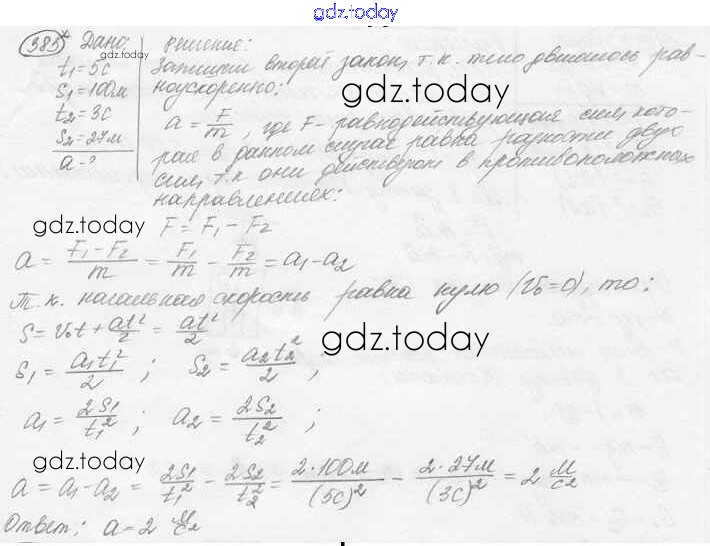 gdz.today
385* Дано: Решение:
t₁=5с Запишем второй закон, т.к. тело двигалось рав-
S₁=100м ноускоренно:
gdz.today
t₂=3с a = F/m, где F- равнодействующая сил, кото-
S₂=27м рая в данном случае равна разности двух
a-? сил, т.к они действуют в противоположных
направлениях:
gdz.today F = F₁ - F₂
a = (F₁-F₂)/m = F₁/m - F₂/m = a₁-a₂
Т.к. начальная скорость равна нулю (V₀=0), то:
S = V₀t + at²/2 = at²/2
gdz.today
S₁ = a₁t₁²/2 ; S₂ = a₂t₂²/2 ;
a₁ = 2S₁/t₁² ; a₂ = 2S₂/t₂² ;
gdz.today
a = a₁-a₂ = 2S₁/t₁² - 2S₂/t₂² = 2·100м/(5с)² - 2·27м/(3с)² = 2 м/с²
Ответ: a=2 м/с²